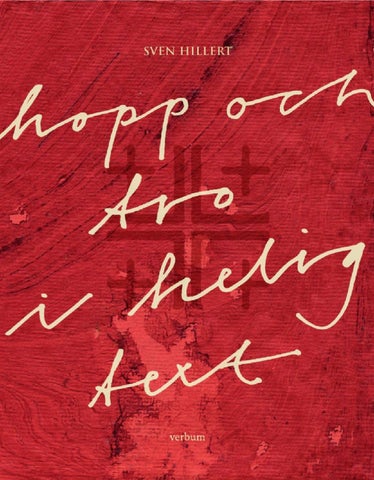 SVEN HILLERT
hopp och
tro
i helig
text
verbum